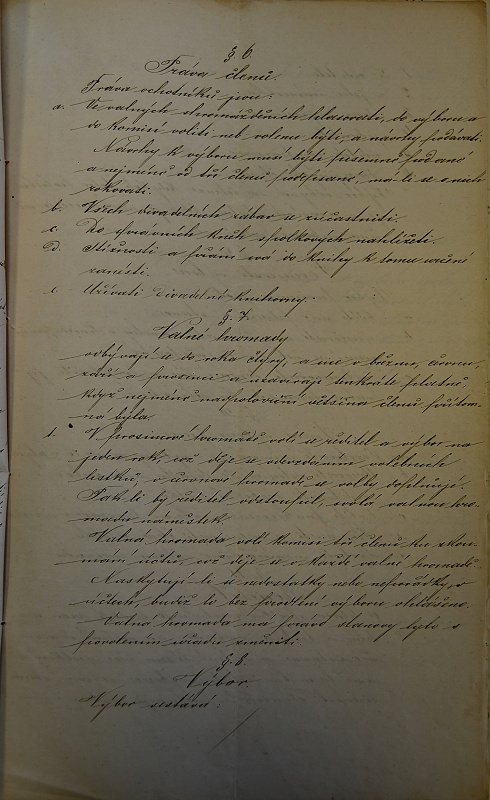 § 6.
Práva členů.
Práva ochotníků jsou:
a. Ve valných shromážděních hlasovati, do výboru a
do komisí voliti neb volenu býti, a návrhy podávati.
Návrhy k výboru musí býti písemně podané
a nejméně od tří členů podepsané, má-li se o nich
rokovati.
b. Všech divadelních zábav se zúčastniti.
c. Do knih spolkových nahlížeti.
d. Stížnosti a přání svá do knihy k tomu určené
zanésti.
e. Užívati divadelní knihovny.
§. 7.
Valné hromady
odbývají se do roka čtyry, a sice v březnu, červnu,
září a prosinci a uzavírají tenkráte platně,
když nejméně nadpoloviční většina členů přítom-
ná byla.
1. V prosincové hromadě volí se ředitel a výbor na
jeden rok, což děje se odevzdáním volebních
lístků, v červnové hromadě se volby doplňují.
Pak-li by ředitel odstoupil, svolá valnou hro-
madu náměstek.
Valná hromada volí komisi tří členů ku zkou-
mání účtů, což děje se v každé valné hromadě.
Naskytují-li se nedostatky nebo nepořádky v
účtech, budiž to bez prodlení výboru ohlášeno.
Valná hromada má právo stanovy tyto s
povolením úřadu změniti.
§. 8.
Výbor.
Výbor sestává: